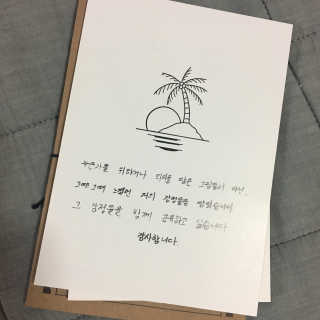 누군가를 위하거나 의미를 담은 그림들이 아닌,
그때 그때 느꼈던 저의 감정들을 담았습니다
그 감정들을 함께 공유하고 싶습니다
감사합니다.